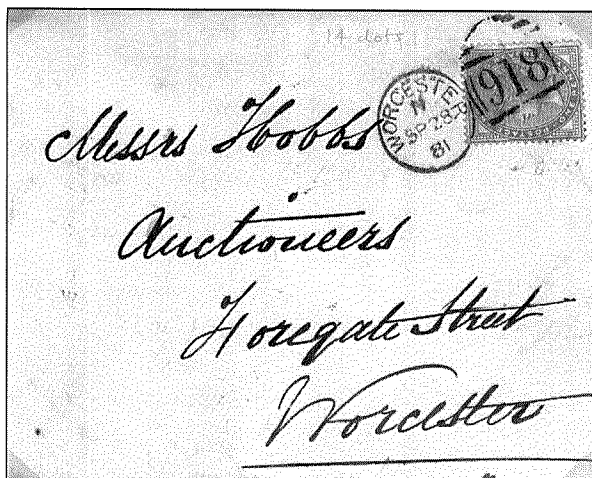 14 dots
WORCESTER
N
SP 28
81
918
Messrs Hobbs
Auctioneers
Foregate Street
Worcester